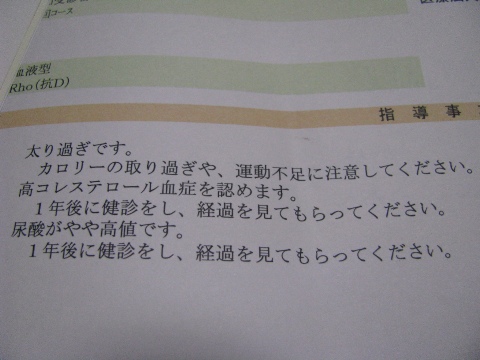 コース
血液型
Rho(抗D)
指導事
太り過ぎです。
カロリーの取り過ぎや、運動不足に注意してください。
高コレステロール血症を認めます。
1年後に健診をし、経過を見てもらってください。
尿酸がやや高値です。
1年後に健診をし、経過を見てもらってください。